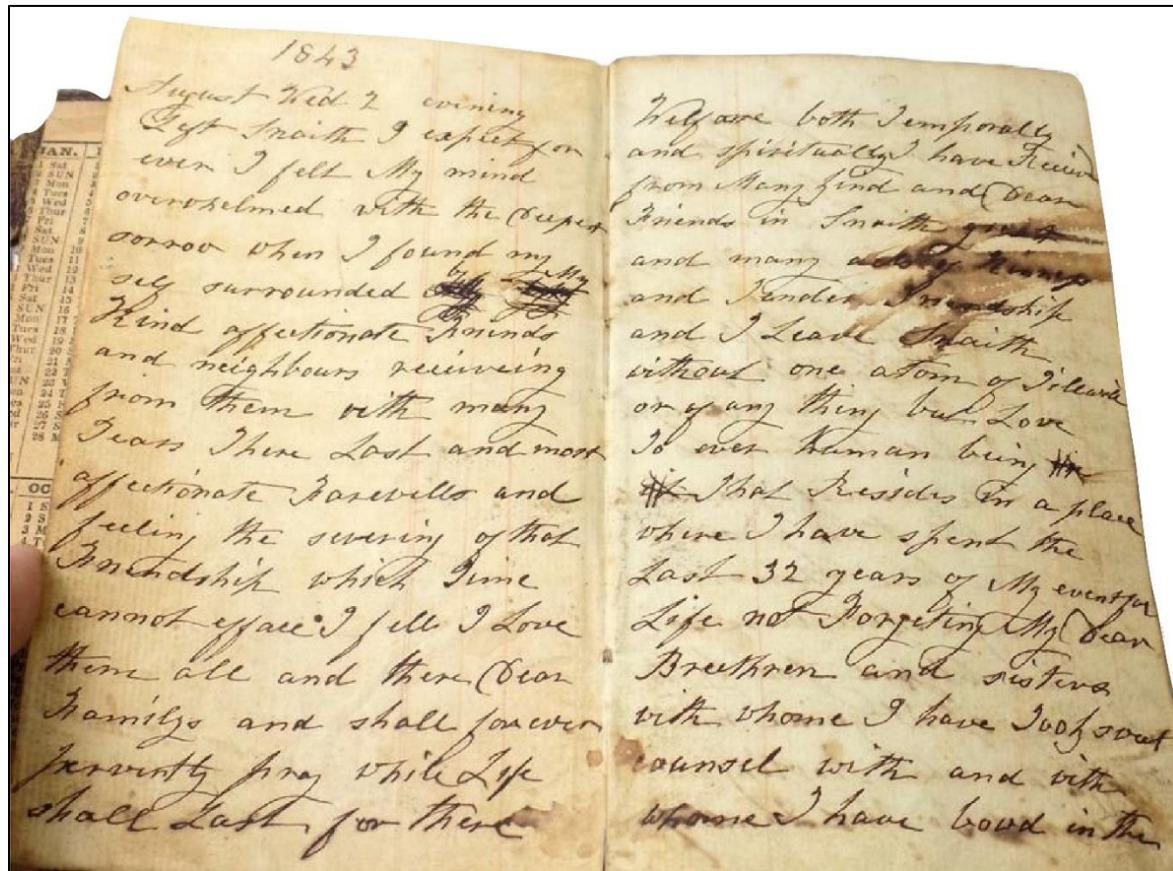 1843
August Wed 2 evening
Left Snaith I expect for
ever I felt My mind
overwhelmed with the Deepest
sorrow when I found my
self surrounded by My
Kind affectionate Friends
and neighbours receiveing
from them with many
Tears There Last and most
affectionate Farewells and
feeling the severing of that
Friendship which Time
cannot efface I felt I Love
them all and there Dear
Familys and shall for ever
fervently pray while Life
shall Last for there
Welfare both Temporally
and spiritually I have Receivd
from Many kind and Dear
Friends in Snaith great
and many acts of Kinness
and Tender Friendship
and I Leave Snaith
without one atom of
or of any thing but Love
To ever human being
That Resides in a place
where I have spent the
Last 32 years of My
Life not Forgeting My Dear
Breethren and sisters
with whome I have Took sweet
counsel with and with
whome I have bowd in the
JAN.
1 Sat
2 SUN
3 Mon
4 Tues
5 Wed
6 Thur
7 Fri
8 Sat
9 SUN
10 Mon
11 Tues
12 Wed
13 Thur
14 Fri
15 Sat
16 SUN
17 Mon
18 Tues
19 Wed
20 Thur
OC
1 S
2 S
3 M